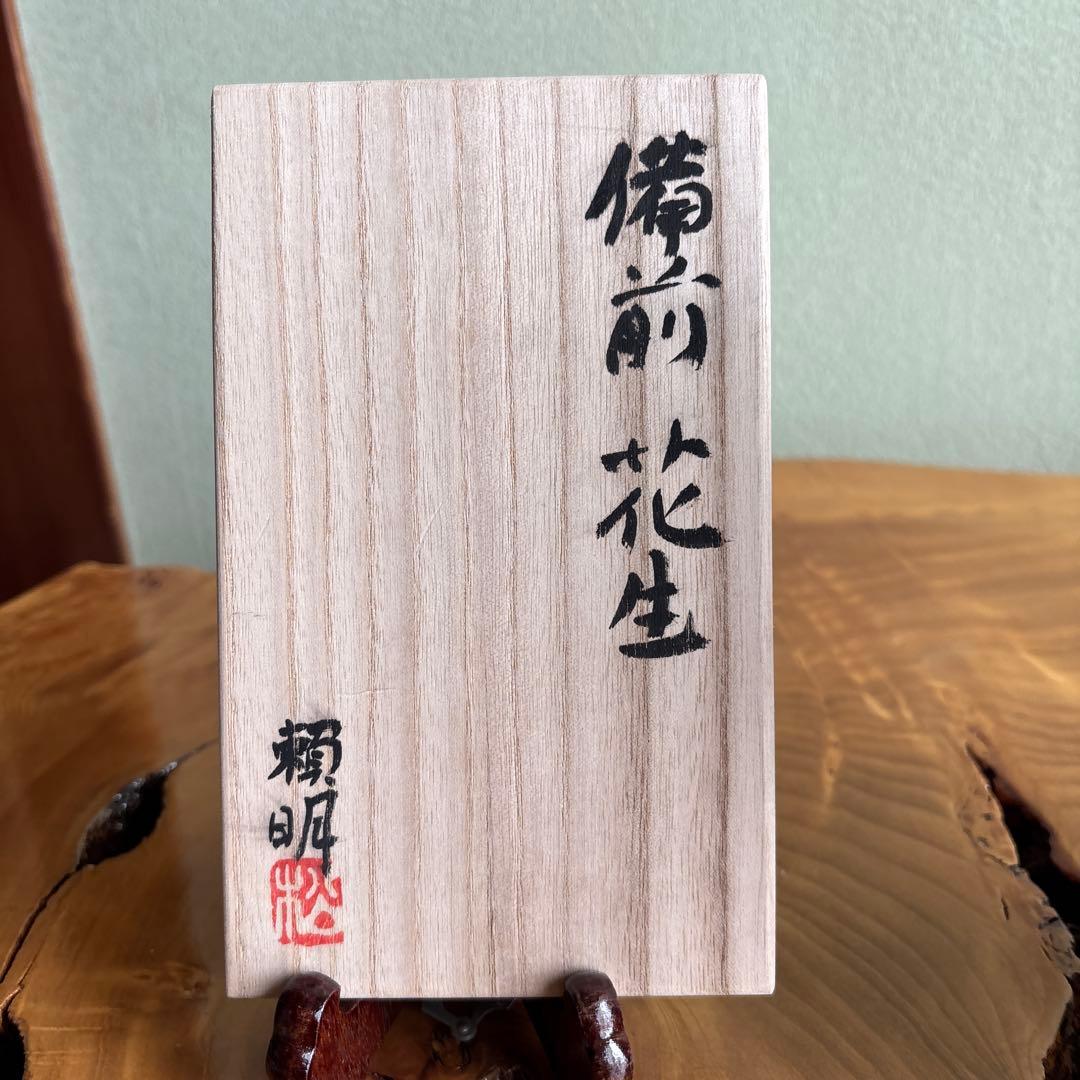 備前 花生
頼明
松